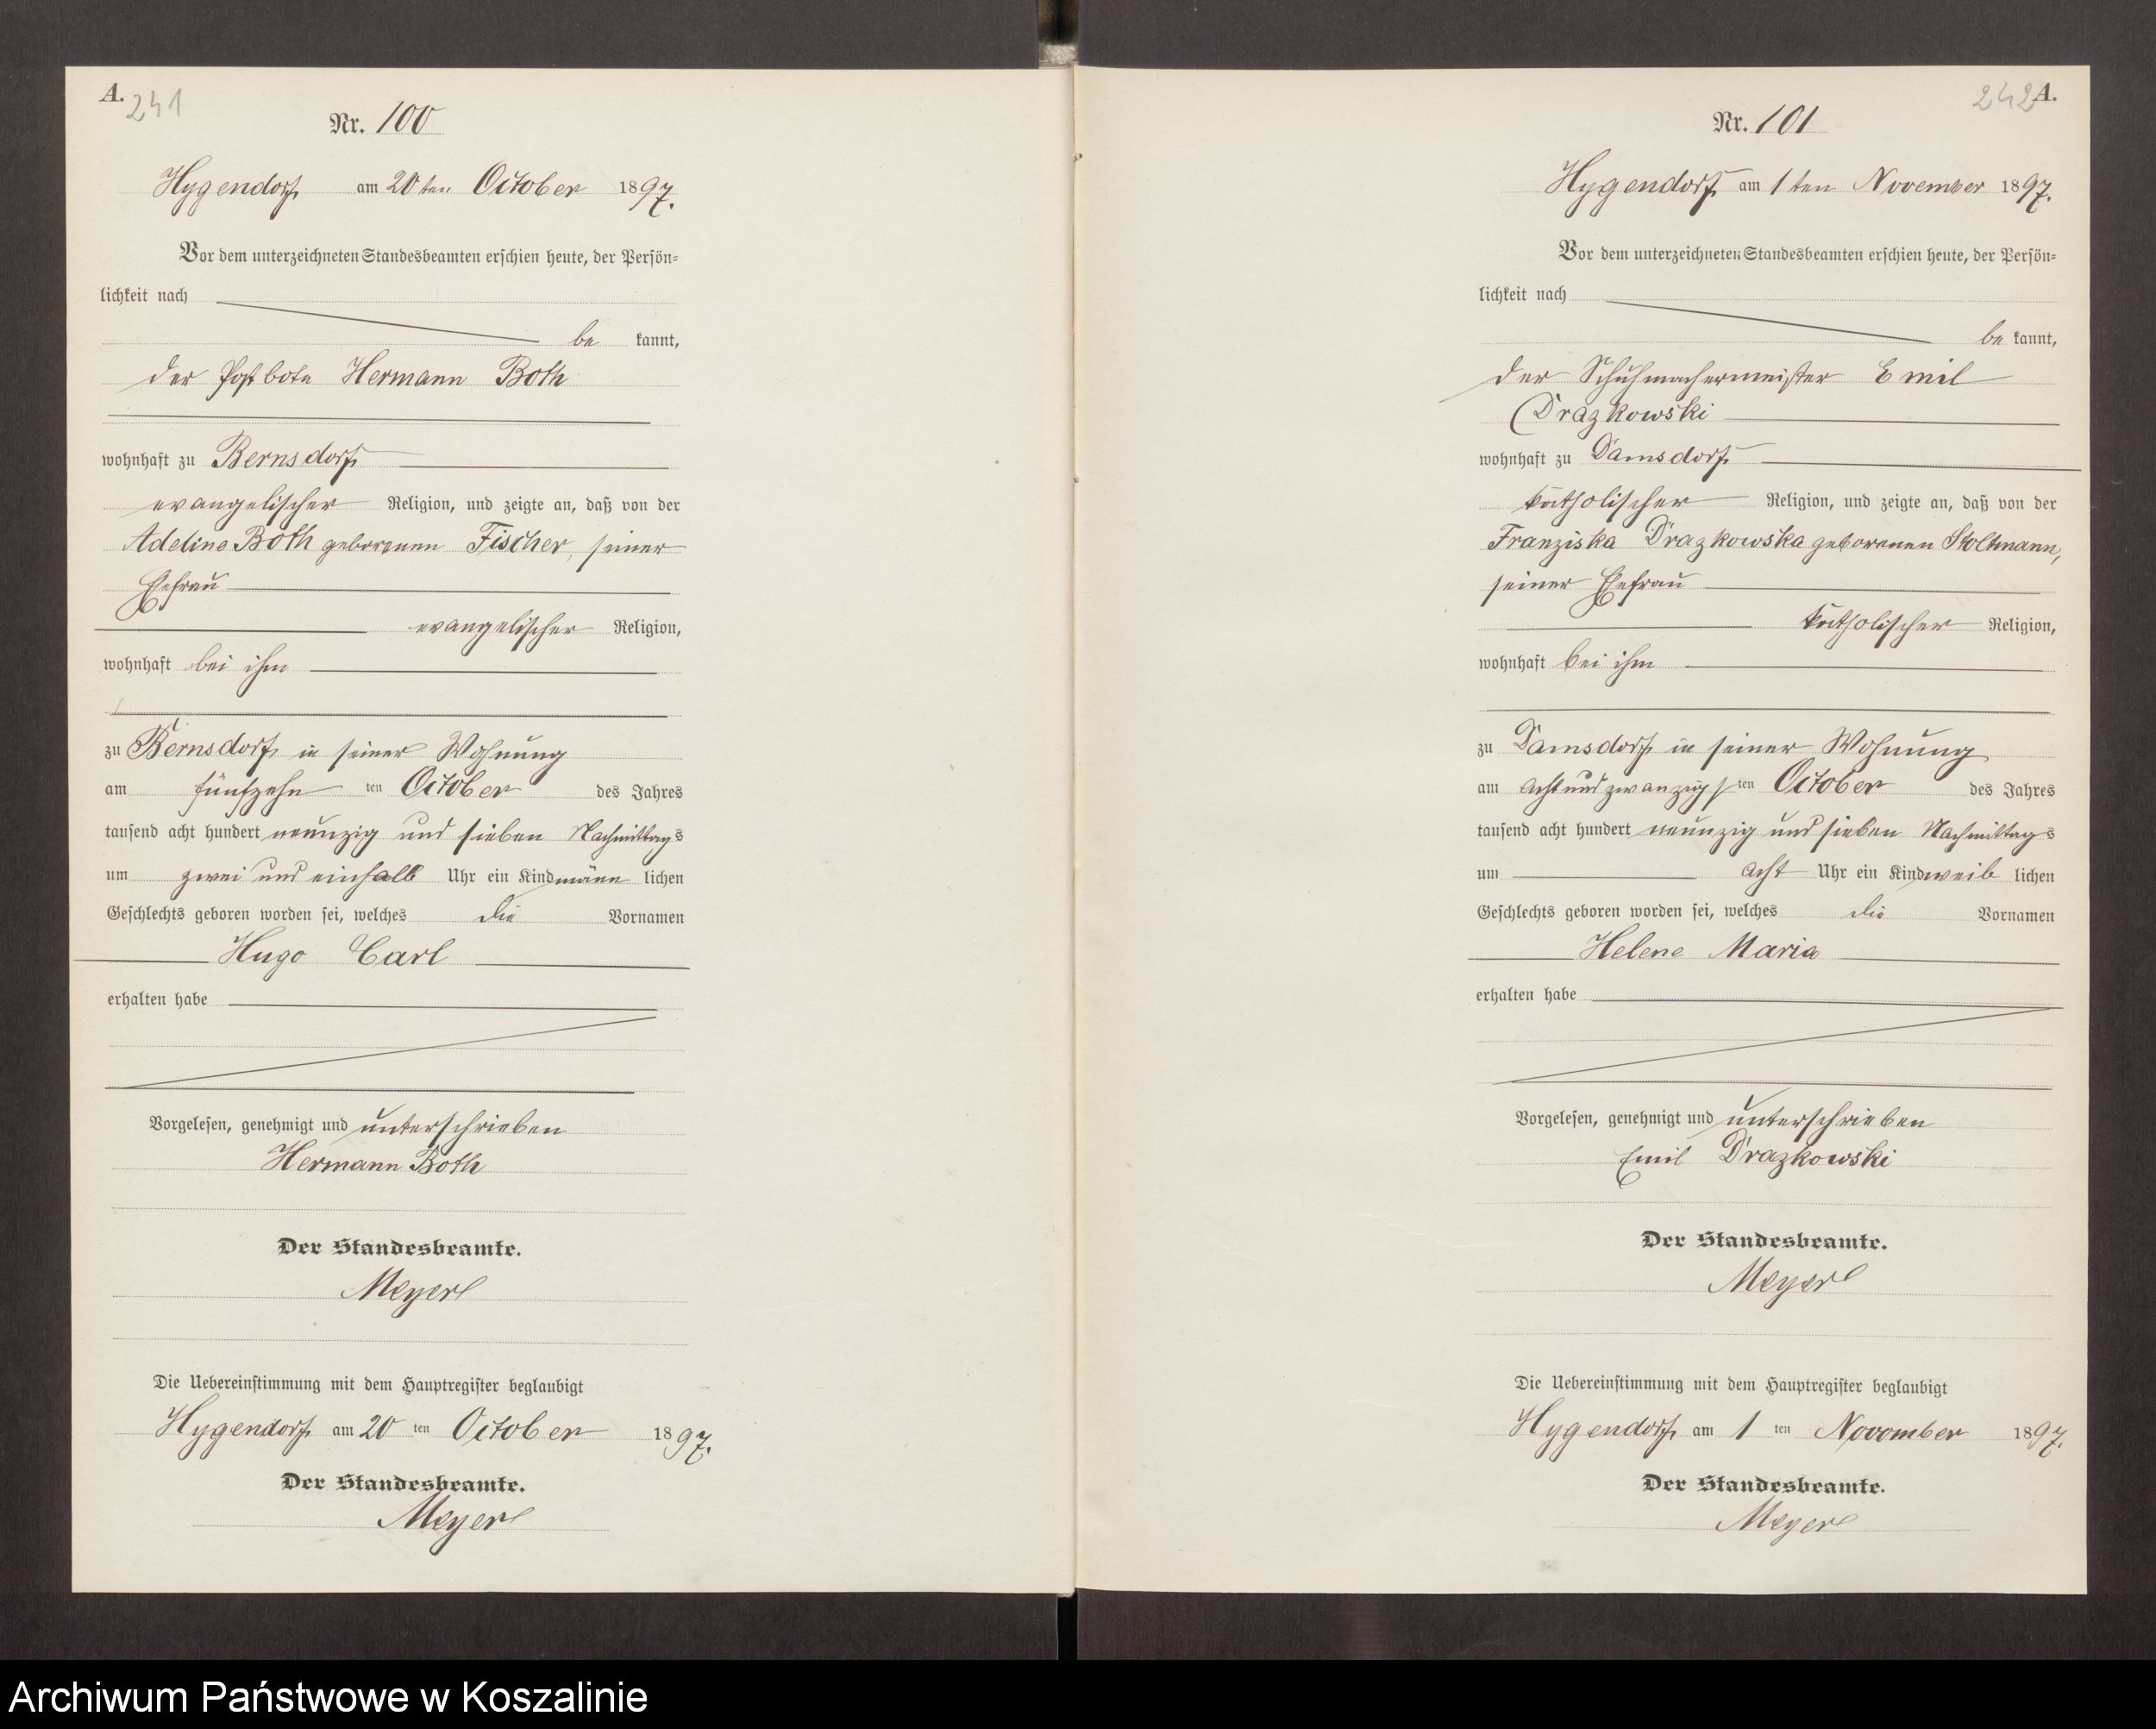 A.
241
Nr. 100
Hygendorf am 20ten October 1897.
Vor dem unterzeichneten Standesbeamten erschien heute, der Persön-
lichkeit nach
be kannt,
der Postbote Hermann Both
wohnhaft zu Bernsdorf
evangelischer Religion, und zeigte an, daß von der
Adeline Both geborenen Fischer, seiner
Ehefrau
evangelischer Religion,
wohnhaft bei ihm
zu Bernsdorf in seiner Wohnung
am fünfzehn ten October des Jahres
tausend acht hundert neunzig und sieben Nachmittags
um zwei und einhalb Uhr ein Kind männ lichen
Geschlechts geboren worden sei, welches die Vornamen
Hugo Carl
erhalten habe
Vorgelesen, genehmigt und unterschrieben
Hermann Both
Der Standesbeamte.
Meyer
Die Uebereinstimmung mit dem Hauptregister beglaubigt
Hygendorf am 20 ten October 1897.
Der Standesbeamte.
Meyer
242 A.
Nr. 101
Hygendorf am 1ten November 1897.
Vor dem unterzeichneten Standesbeamten erschien heute, der Persön-
lichkeit nach
be kannt,
der Schuhmachermeister Emil
Drazkowski
wohnhaft zu Damsdorf
katholischer Religion, und zeigte an, daß von der
Franziska Drazkowska geborenen Stoltmann,
seiner Ehefrau
katholischer Religion,
wohnhaft bei ihm
zu Damsdorf in seiner Wohnung
am achtundzwanzigs ten October des Jahres
tausend acht hundert neunzig und sieben Nachmittags
um acht Uhr ein Kind weib lichen
Geschlechts geboren worden sei, welches die Vornamen
Helene Maria
erhalten habe
Vorgelesen, genehmigt und unterschrieben
Emil Drazkowski
Der Standesbeamte.
Meyer
Die Uebereinstimmung mit dem Hauptregister beglaubigt
Hygendorf am 1 ten November 1897.
Der Standesbeamte.
Meyer
Archiwum Państwowe w Koszalinie